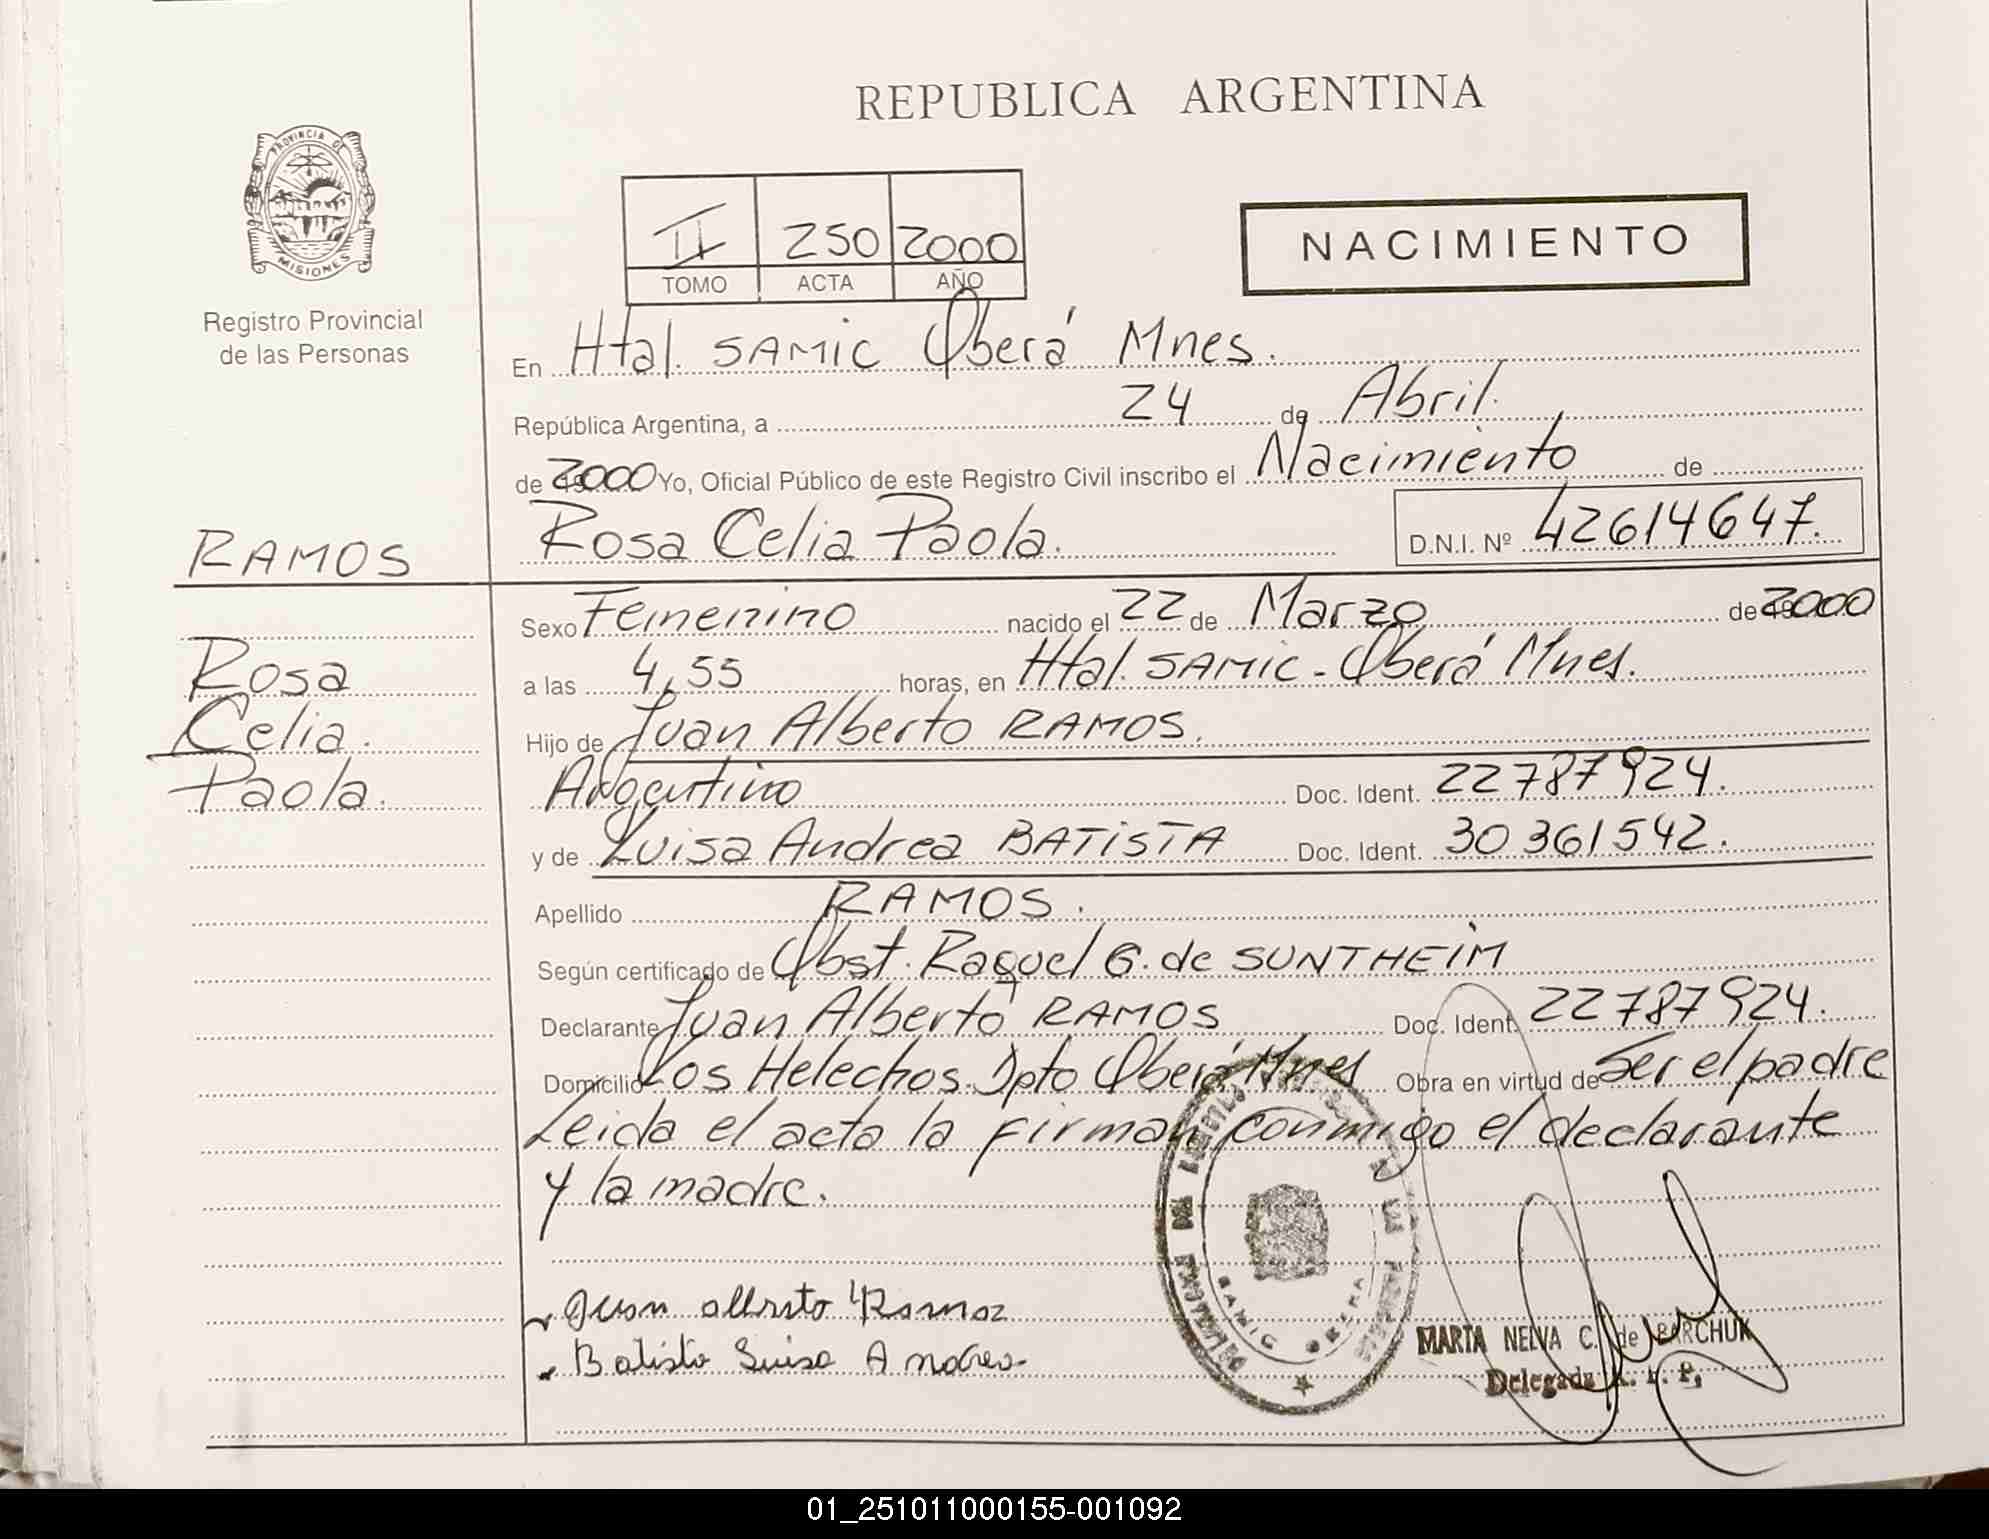 REPUBLICA ARGENTINA
PROVINCIA DE
MISIONES
Registro Provincial
de las Personas
II 250 2000
TOMO ACTA AÑO
NACIMIENTO
En Htal. SAMIC Oberá Mnes.
República Argentina, a 24 de Abril.
de 2000 Yo, Oficial Público de este Registro Civil inscribo el Nacimiento de
Rosa Celia Paola. D.N.I. Nº 42614647.
RAMOS
Rosa
Celia.
Paola.
Sexo Femenino nacido el 22 de Marzo de 2000
a las 4,55 horas, en Htal. SAMIC - Oberá Mnes.
Hijo de Juan Alberto RAMOS.
Argentino Doc. Ident. 22787924.
y de Luisa Andrea BATISTA Doc. Ident. 30361542.
Apellido RAMOS.
Según certificado de Obst. Raquel G. de SUNTHEIM
Declarante Juan Alberto RAMOS Doc. Ident. 22787924.
Domicilio Los Helechos. Dpto Oberá Mnes Obra en virtud de Ser el padre
Leida el acta la firman conmigo el declarante
y la madre.
Juan alberto Ramos
Batista Luisa Andrea
SAMIC OBERA
MARTA NELVA C. de BARCHUK
Delegada R. P. P.
01_251011000155-001092